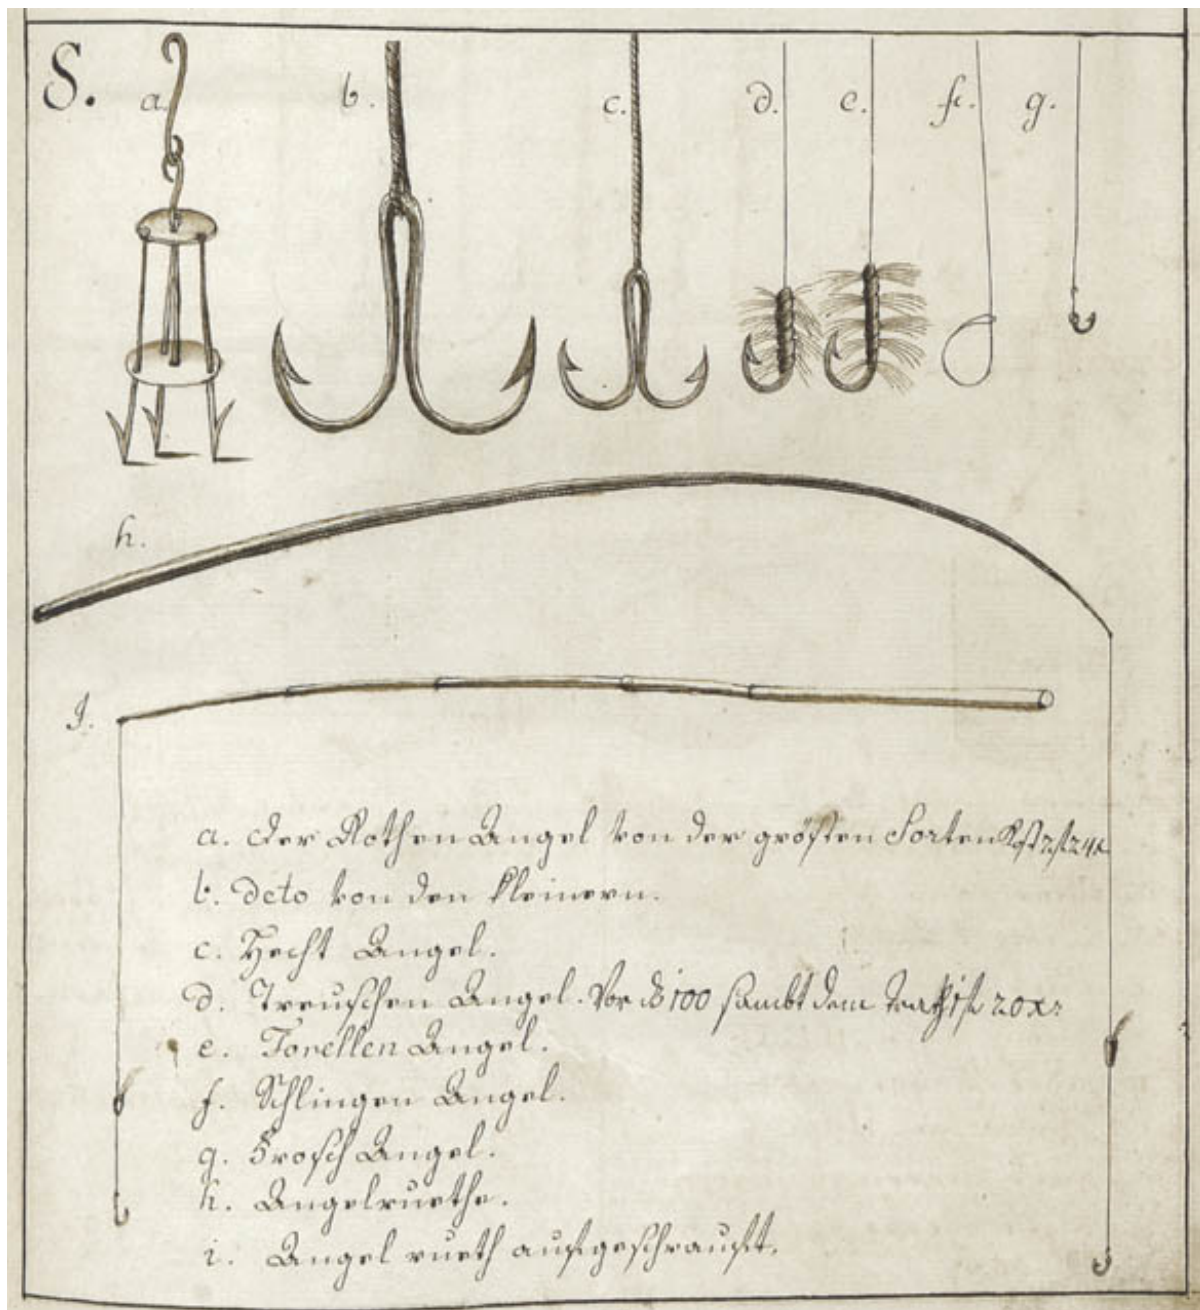 S.
a. b. c. d. e. f. g.
h.
J.
a. der Rothen Angel von der grösten Sorten
b. deto von den kleinern.
c. Hecht Angel.
d. Treuschen Angel. Vor 100 sambt dem
e. Forellen Angel.
f. Schlingen Angel.
g. Frosch Angel.
h. Angelruethe.
i. Angel rueth aufgeschrauft.